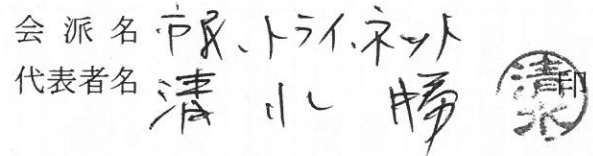 会派名 市民、トライ、ネット
代表者名 清水 勝 印 清水